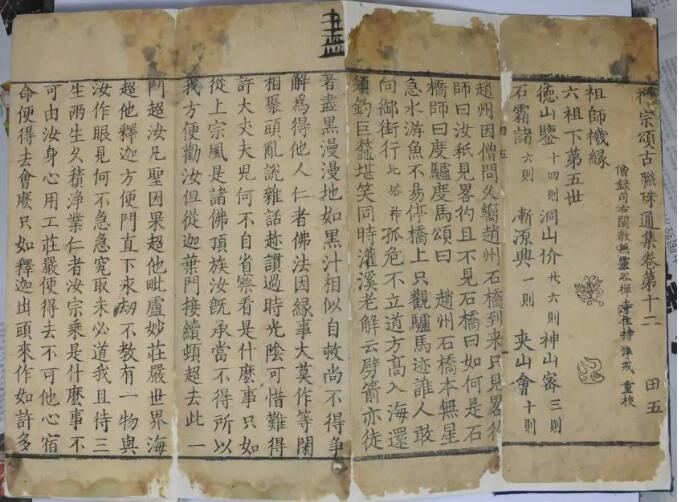 禪宗頌古聯珠通集卷第十二 田五
僧錄司右闡教兼靈谷禪寺住持淨戒重校
祖師機緣
六祖下第五世
德山鑒十四則 洞山价廿六則 神山密三則
石霜諸六則 漸源興一則 夾山會十則
趙州因僧問久嚮趙州石橋到來只見畧彴
師曰汝秖見畧彴且不見石橋曰如何是石
橋師曰度驢度馬頌曰 趙州石橋本無星
急水游魚不易停橋上只觀驢馬迹誰人敢
向御街行 祚 孤危不立道方高入海還
須釣巨鼇堪笑同時灌溪老解云劈箭亦徒
著盡黑漫漫地如黑汁相似自救尚不得爭
解為得他人仁者佛法因緣事大莫作等閑
相聚頭亂說雜話趂讃過時光陰可惜難得
許大丈夫兒何不自省察看是什麼事只如
從上宗風是諸佛頂族汝既承當不得所以
我方便勸汝但從迦葉門接續頓超去此一
門超汝凡聖因果超他毗盧妙莊嚴世界海
超他釋迦方便門直下永劫不教有一物與
汝作眼見何不急急究取未必道我且待三
生兩生久積淨業仁者汝宗乘是什麼事不
可由汝身心用工莊嚴便得去不可他心宿
命便得去會麼只如釋迦出頭來作如許多